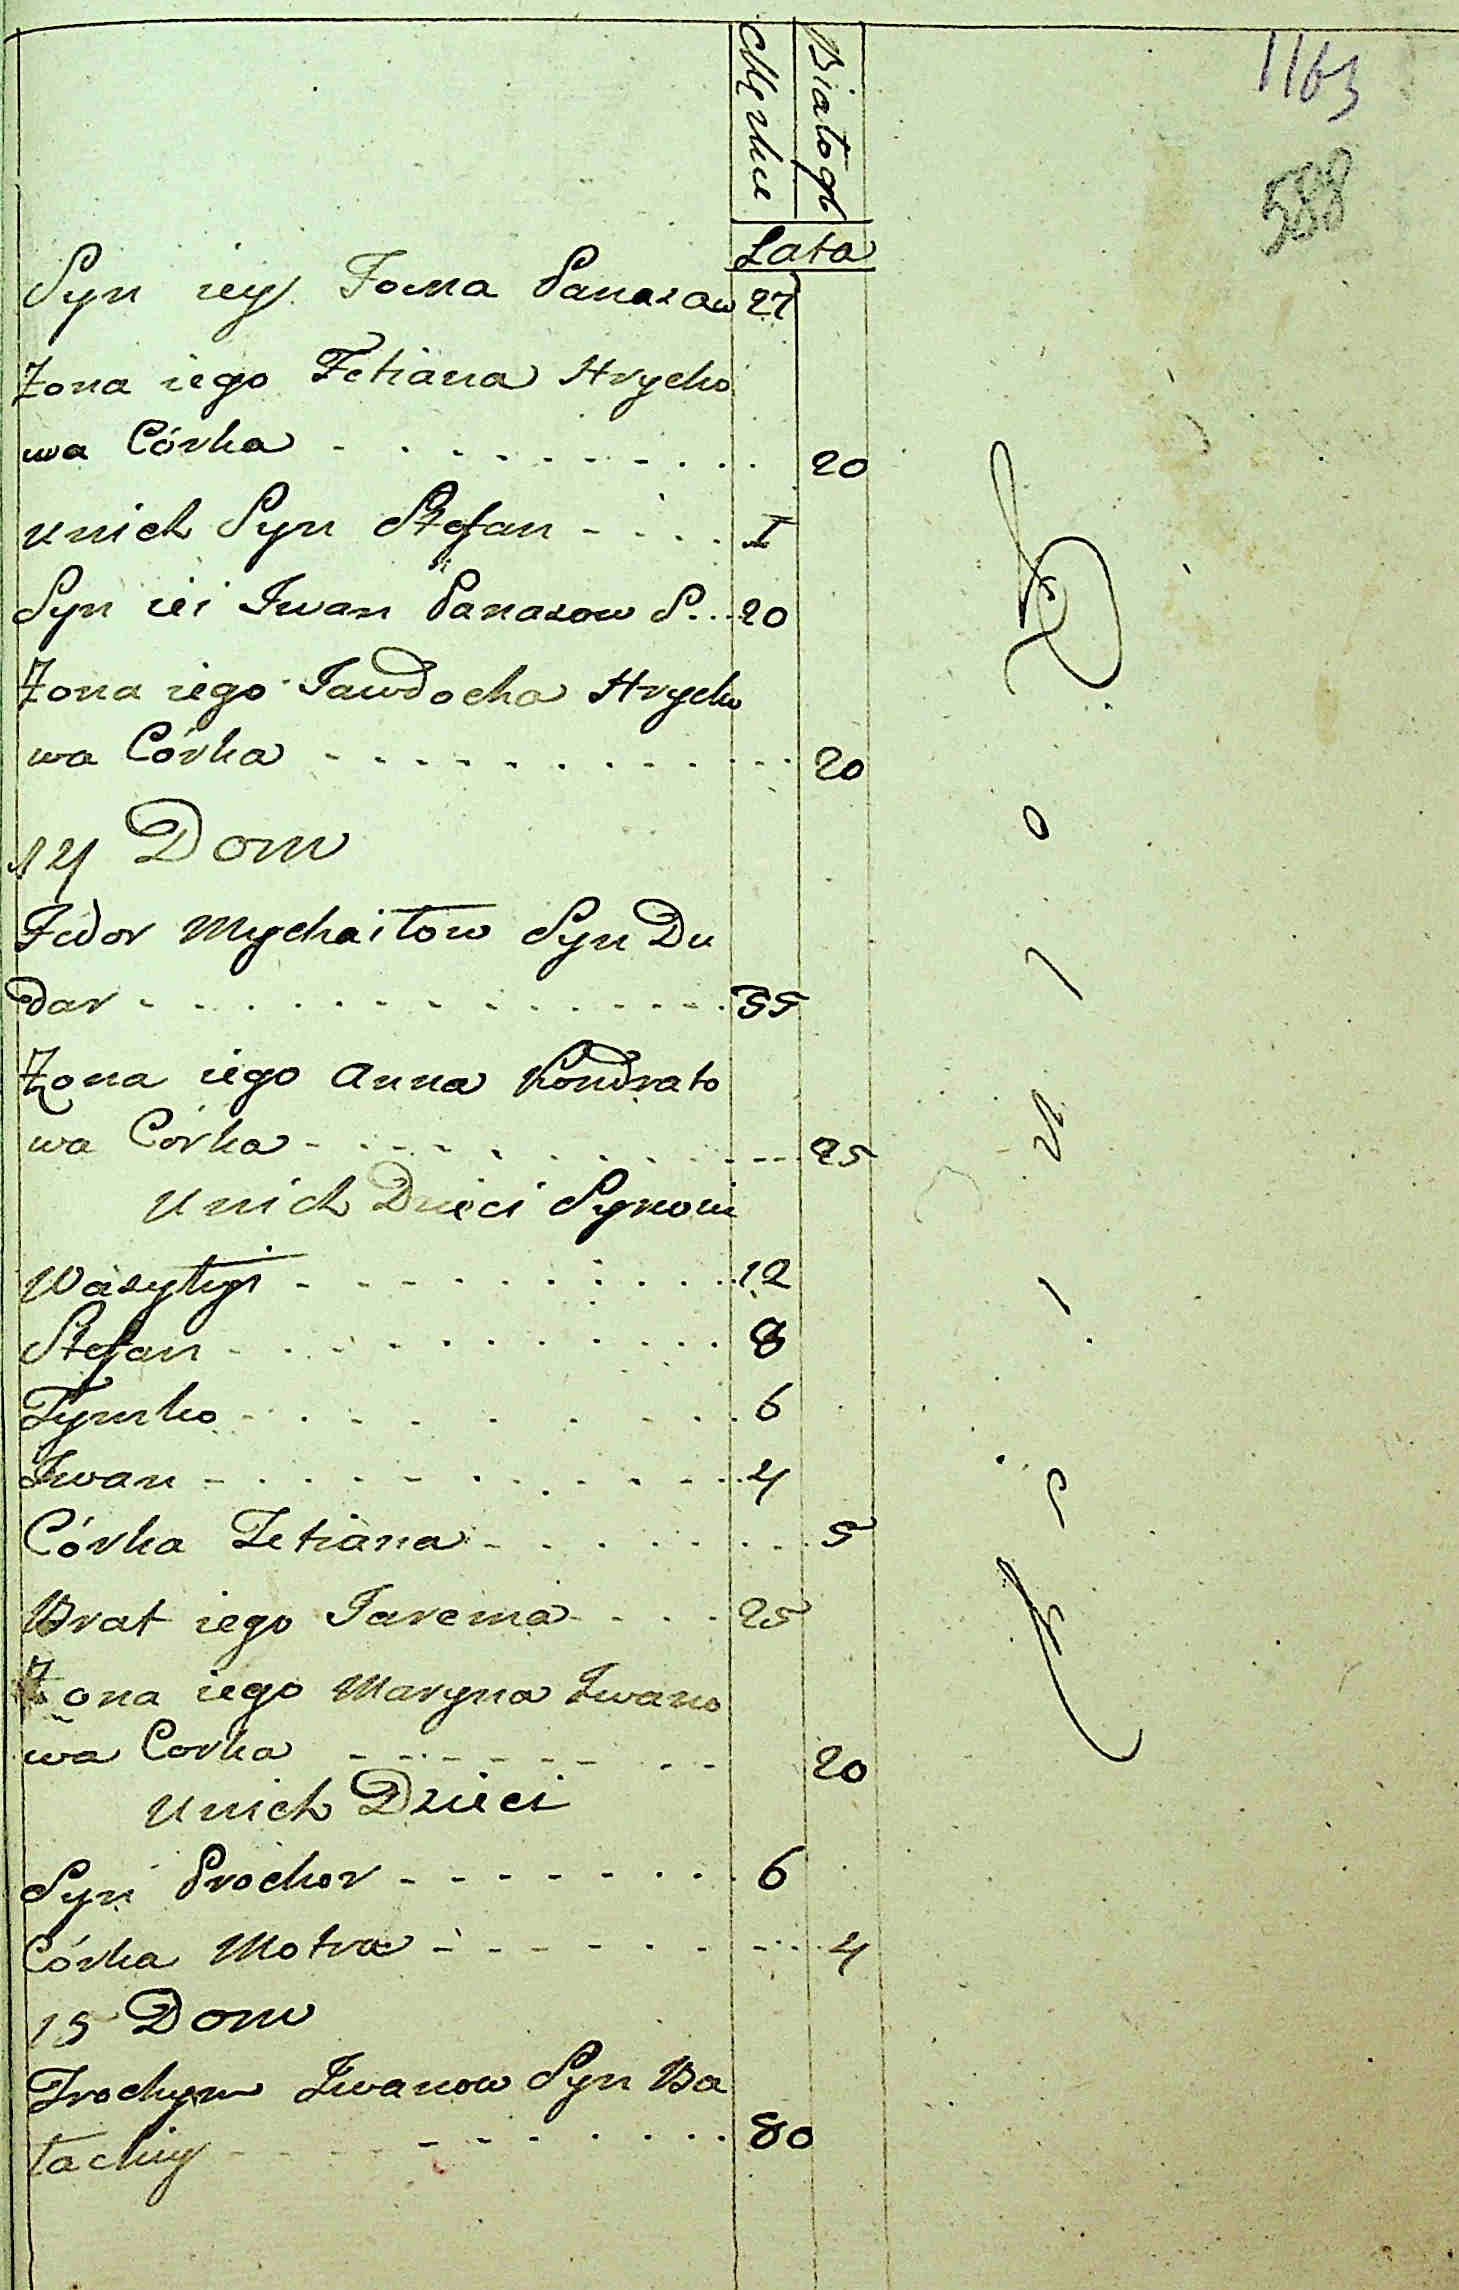 Męzkie
Białogło
1163
588
Lata
Syn iey Foma Panasow 27
Żona iego Tetiana Hrycho
wa Córka - - - - - - 20
unich Syn Stefan - - - 1
Syn iei Iwan Panasow S. .. 20
Żona iego Iawdocha Hrycho
wa Córka - - - - - - 20
14 Dom
Fedor Mychaiłow Syn Du
dar - - - - - - 35
Żona iego Anna Kondrato
wa Córka - - - - - - 25
unich Dzieci Synowi
Wasylyi - - - - - - 12
Stefan - - - - - - 8
Tymko - - - - - - 6
Iwan - - - - - - 4
Córka Tetiana - - - - - - 5
Brat iego Iarema - - - 25
Żona iego Maryna Iwano
wa Corka - - - - - - 20
unich Dzieci
Syn Prochor - - - - - - 6
Córka Motra - - - - - - 4
15 Dom
Trochym Iwanow Syn Ba
łachiy - - - - - - 80